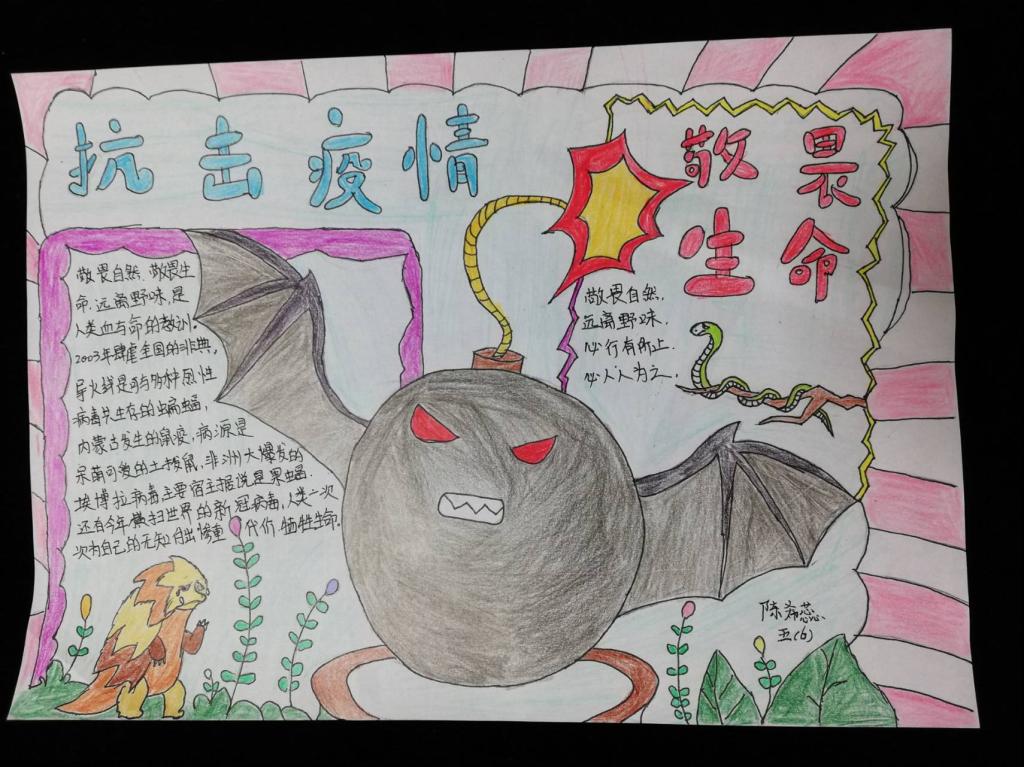 抗击疫情
敬畏
生命
敬畏自然、敬畏生
命,远离野味,是
人类血与命的教训。
2003年肆虐全国的非典,
导火线是可与多种烈性
病毒共生存的蝙蝠,
内蒙古发生的鼠疫,病源是
呆萌可爱的土拨鼠,非洲大爆发的
埃博拉病毒主要宿主据说是果蝠.
还有今年横扫世界的新冠病毒,人类一次
次为自己的无知付出惨重代价,牺牲生命。
敬畏自然,
远离野味.
心行有所止.
必人人为之,
陈希蕊
五(6)